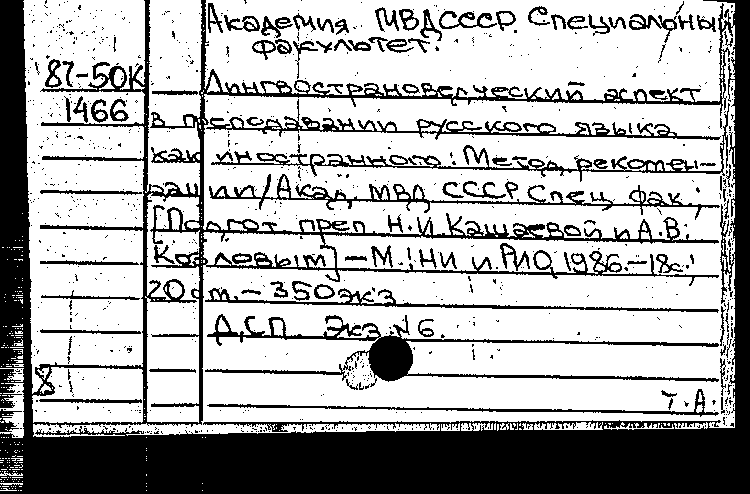 Академия МВД СССР. Специальный
факультет.
87-50К Лингвострановедческий аспект
1466 в преподавании русского языка
как иностранного: Метод, рекомен-
дации/Акад. МВД СССР. Спец. фак.;
[Подгот. преп. Н.И. Кашаевой и А.В.
Козловым] – М.: НИ и РИО, 1986. – 18с.;
20 см. – 350 экз.
ДСП Экз. № 6.
8
Т.А.